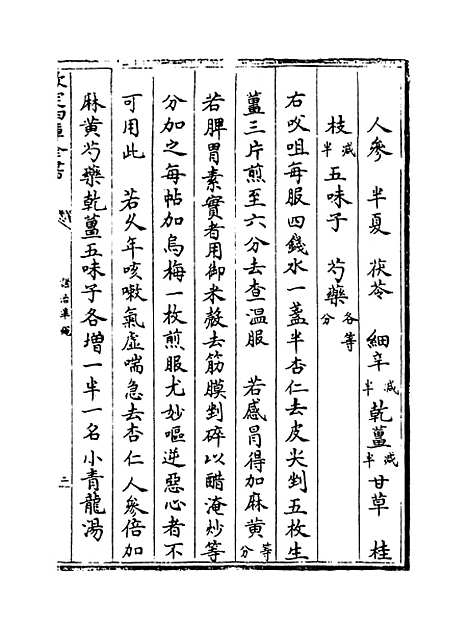 人參　半夏　茯苓　細辛減半乾薑減半甘草　桂
枝減半五味子　芍藥各等分
右㕮咀每服四錢水一盞半杏仁去皮尖剉五枚生
薑三片煎至六分去查溫服　若感冐得加麻黄等分
若脾胃素實者用御米殼去筋膜剉碎以醋淹炒等
分加之每帖加烏梅一枚煎服尤妙嘔逆惡心者不
可用此　若久年咳嗽氣虛喘急去杏仁人參倍加
麻黄芍藥乾薑五味子各增一半一名小青龍湯
欽定四庫全書
證治準繩
二